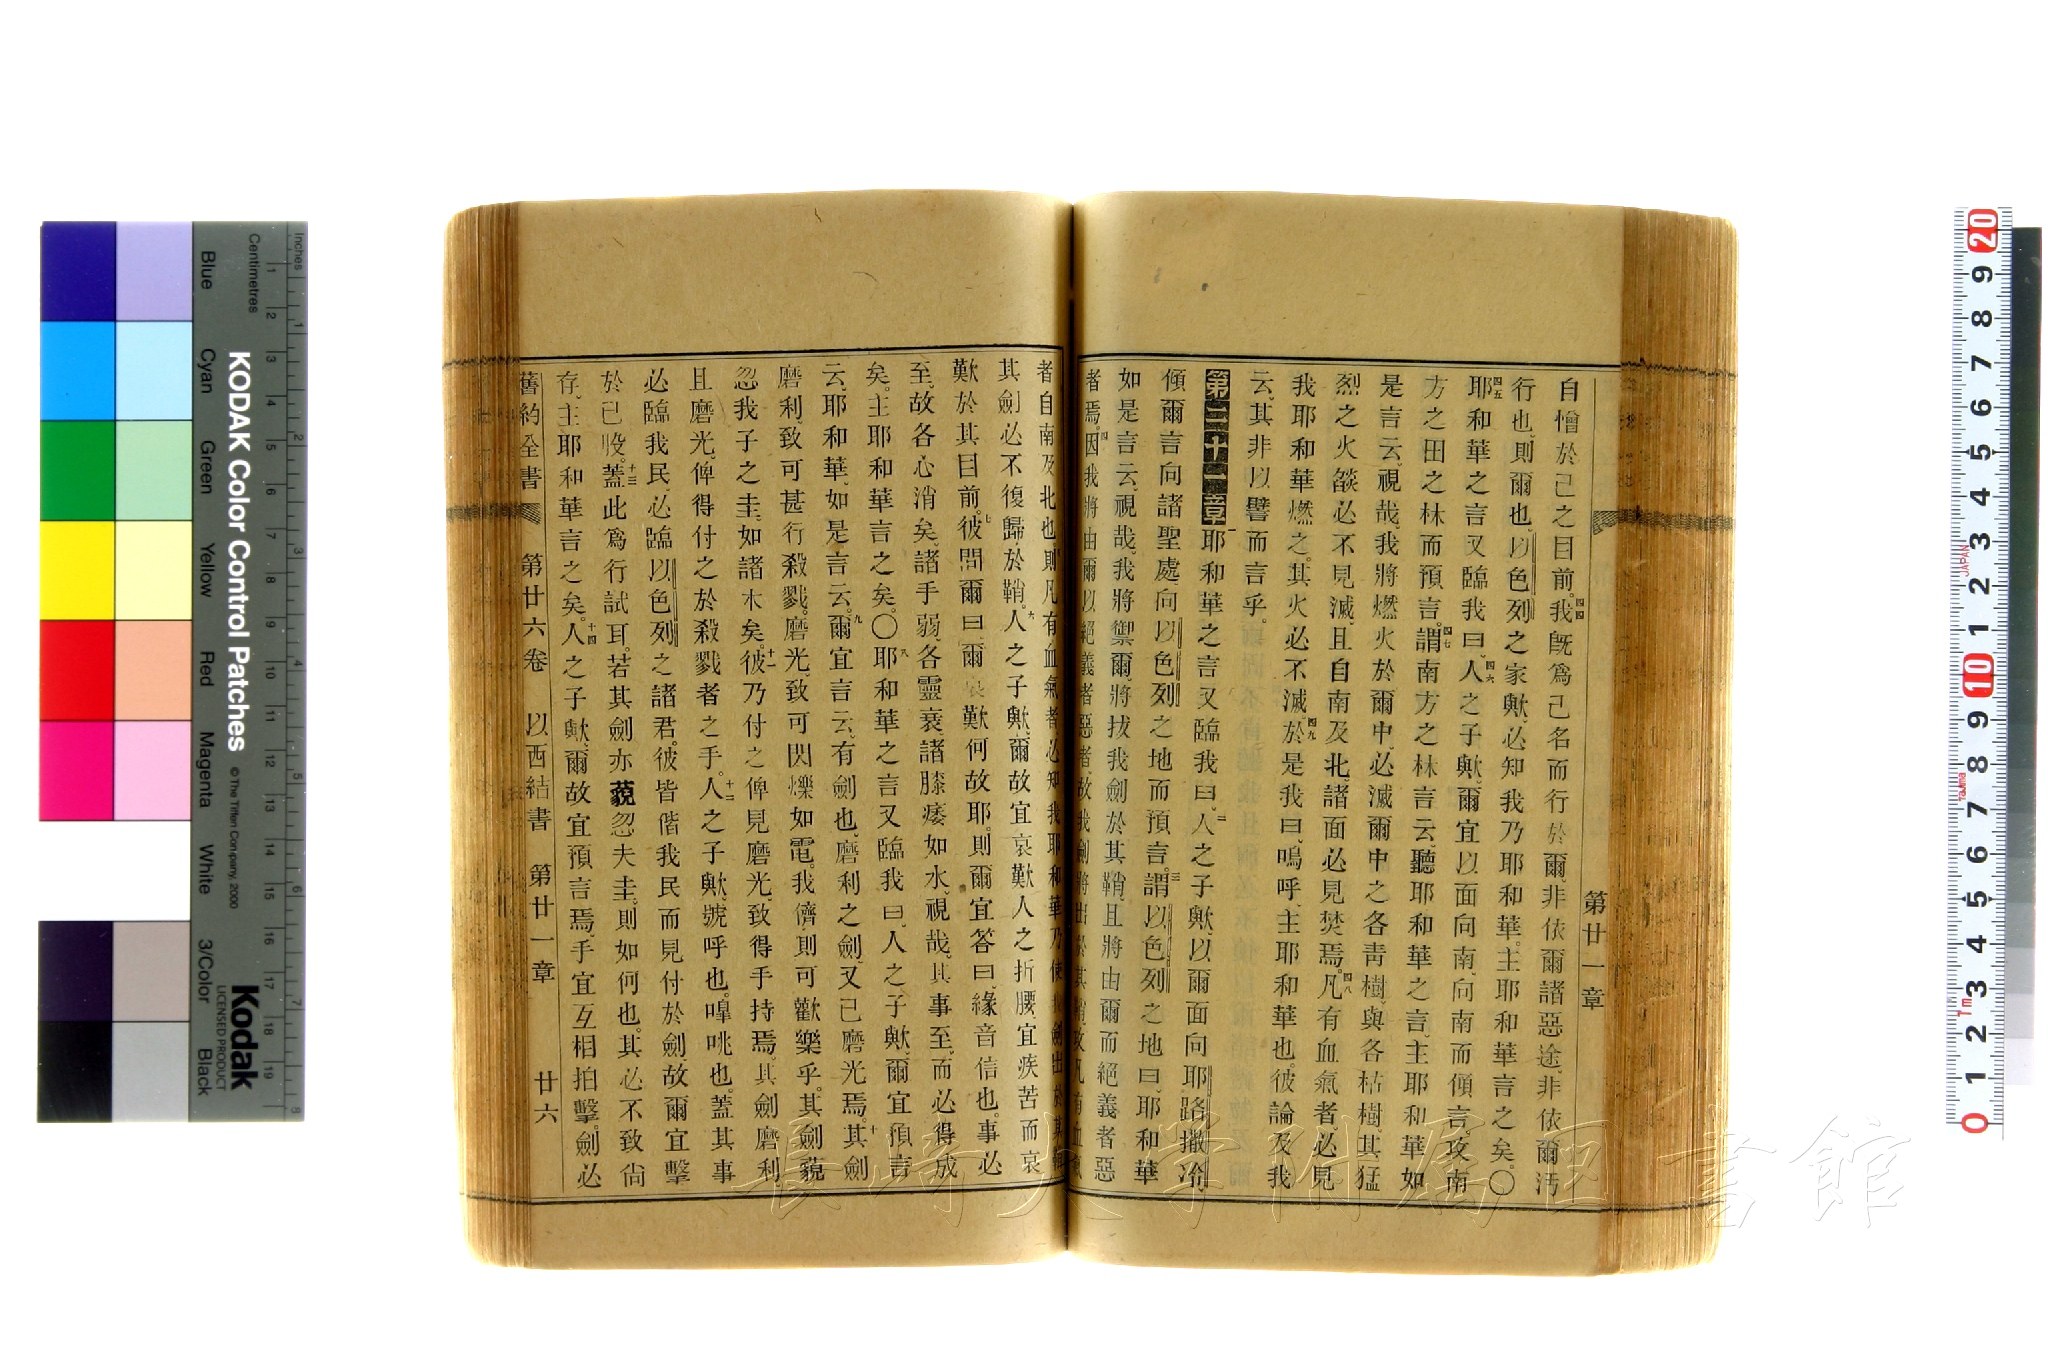 第廿一章
自憎於己之目前。四四我旣爲己名而行於爾、非依爾諸惡途、非依爾汚
行也、則爾也、以色列之家歟、必知我乃耶和華。主耶和華言之矣。〇
四五耶和華之言又臨我曰、四六人之子歟、爾宜以面向南、向南而傾言。攻南
方之田之林而預言。四七謂南方之林言云、聽耶和華之言、主耶和華如
是言云、視哉、我將燃火於爾中、必滅爾中之各靑樹、與各枯樹、其猛
烈之火燄必不見滅、且自南及北、諸面必見焚焉。四八凡有血氣者、必見
我耶和華燃之。其火必不滅。四九於是我曰、嗚呼、主耶和華也。彼論及我
云、其非以譬而言乎。
第二十一章 一耶和華之言又臨我曰、二人之子歟、以爾面向耶路撒冷、
傾爾言向諸聖處、向以色列之地而預言。三謂以色列之地曰、耶和華
如是言云、視哉、我將禦爾、將拔我劍於其鞘、且將由爾而絕義者惡
者焉。四因我將由爾以絕義者惡者、故我劍將出於其鞘、攻凡有血氣
者自南及北也、則凡有血氣者、必知我耶和華乃使我劍出於其鞘
其劍必不復歸於鞘。六人之子歟、爾故宜哀歎、人之折腰、宜疾苦而哀
歎於其目前。七彼問爾曰、爾哀歎何故耶。則爾宜答曰、緣音信也。事必
至、故各心消矣、諸手弱、各靈衰、諸膝痿如水、視哉、其事至、而必得成
矣。主耶和華言之矣。〇八耶和華之言又臨我曰、人之子歟、爾宜預言
云、耶和華、如是言云。九爾宜言云、有劍也、磨利之劍、又已磨光焉。十其劍
磨利、致可甚行殺戮、磨光、致可閃爍如電。我儕則可歡樂乎。其劍藐
忽我子之圭、如諸木矣。十一彼乃付之俾見磨光、致得手持焉。其劍磨利
且磨光、俾得付之於殺戮者之手。十二人之子歟、號呼也。嘷咷也、蓋其事
必臨我民、必臨以色列之諸君。彼皆偕我民而見付於劍、故爾宜擊
於己股。十三蓋此爲行試耳。若其劍亦藐忽夫圭、則如何也。其必不致尙
存、主耶和華言之矣。十四人之子歟、爾故宜預言焉、手宜互相拍擊。劍必
舊約全書 第廿六卷 以西結書 第廿一章 廿六
KODAK Color Control Patches
© The Tiffen Company, 2000
Kodak
LICENSED PRODUCT
Inches
Centimetres
Blue Cyan Green Yellow Red Magenta White 3/Color Black
長崎大学附属図書館